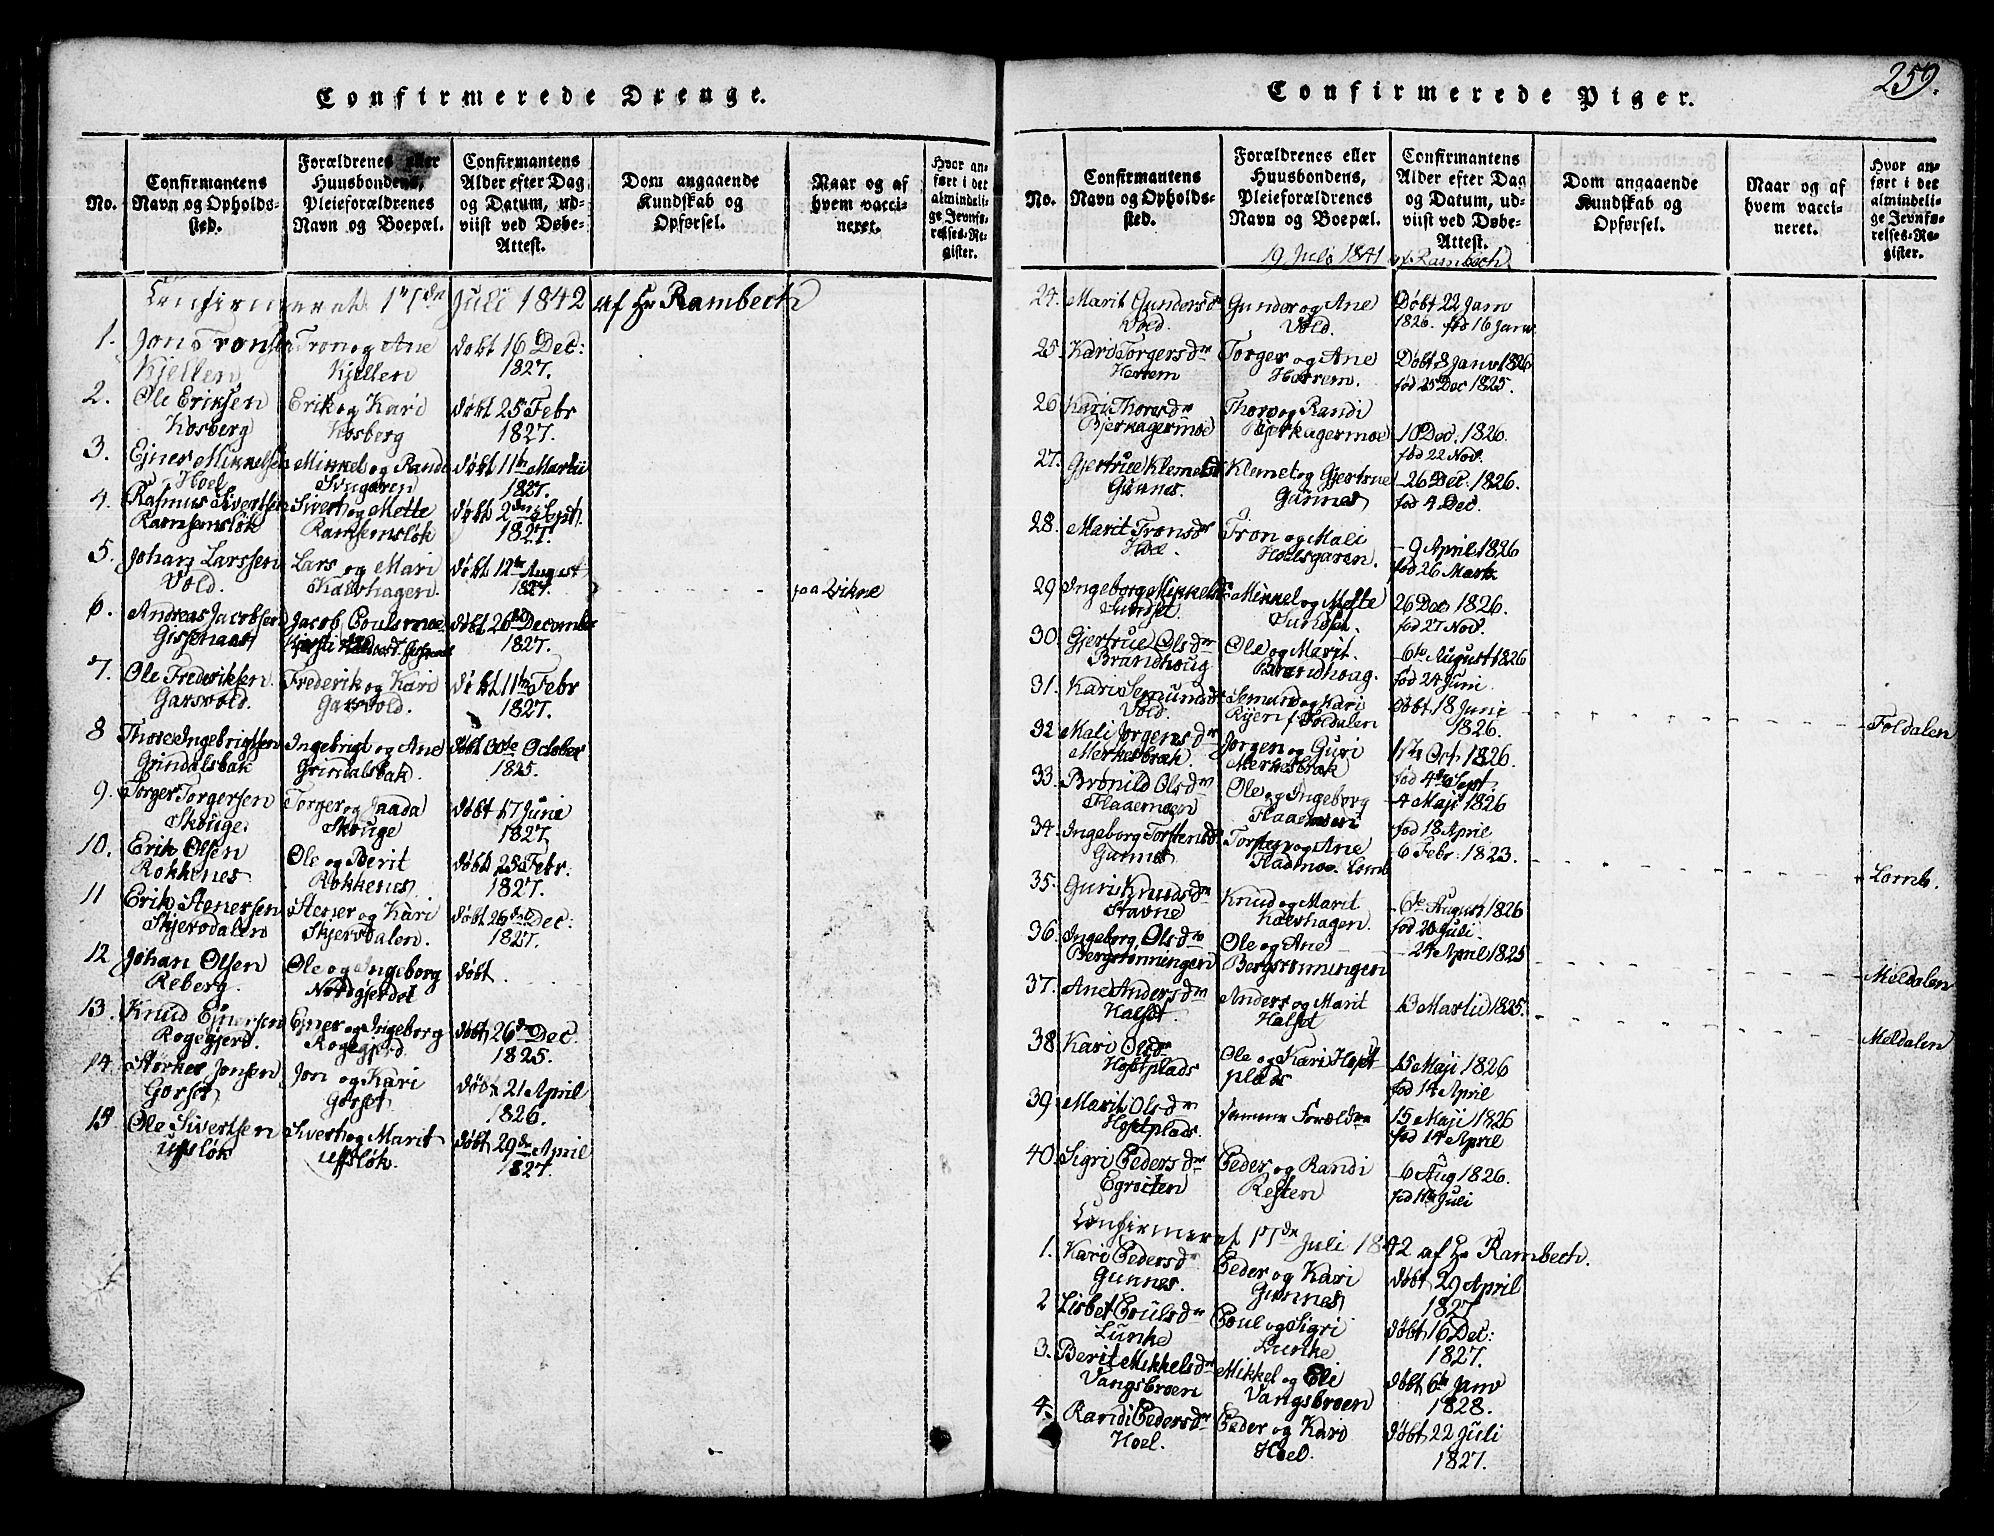 Confirmerede Drenge.
No.
Confirmantens
Navn og Opholds-
sted.
Forældrenes eller
Huusbondens,
Pleieforældrenes
Navn og Boepæl.
Confirmantens
Alder efter Dag
og Datum, ud-
viist ved Døbe-
Attest.
Dom angaaende
Kundskab og
Opførsel.
Naar og af
hvem vacci-
neret.
Hvor an-
ført i det
almindeli-
ge Jevnfø-
relses-Re-
gister.
Confirmeret 17de Juli 1842 af Hr Rambech
1. Jon Tronsen Tron og Ane døbt 16 Dec:
Kjellen Kjellen 1827.
2. Ole Eriksen Erik og Kari døbt 25 Febr
Kosberg Kosberg 1827.
3. Ejner Mikkelsen Mikkel og Randi døbt 11te Martii
Hoel Svugaren 1827.
4. Rasmus Sivertsen Sivert og Mette døbt 2den Sept.
Ramsemsløk Ramsemsløk 1827.
5. Johan Larssen Lars og Mari døbt 12te August
Vold. Kalvhagen. 1827. paa Vikne
6. Andreas Jacobsen Jacob Poulsmoe døbt 26de December
Gissenaas 1827.
7. Ole Frederiksen. Frederik og Kari døbt 11te Febr
Garsvold. Garsvold. 1827.
8 Thore Ingebrigtsen Ingebrigt og Ane døbt 30te October
Grindalsbak Grindalsbak. 1825.
9. Torger Torgersen Torger og Jaada døbt 17 Junie
Skouge. Skouge 1827.
10. Erik Olsen Ole og Berit døbt 28 Febr.
Rokkenes Rokkenes 1827.
11 Erik Stenersen Stener og Kari døbt 26de Dec:
Skjervdalen Skjervdalen. 1827.
12 Johan Olsen Ole og Ingeborg døbt
Reberg. Nordgjerdet
13. Knud Ejnersen Ejner og Ingeborg døbt 26de Dec.
Rogegjerd. Rogegjerd. 1825.
14. Størker Jonsen Jon og Kari døbt 21 April
Gorset Gorset. 1826.
15 Ole Sivertsen Sivert og Marit døbt 29de April
Uffsløk Uffsløk. 1827.
Confirmerede Piger.
259.
No.
Confirmantens
Navn og Opholds-
sted.
Forældrenes eller
Huusbondens,
Pleieforældrenes
Navn og Boepæl.
Confirmantens
Alder efter Dag
og Datum, ud-
viist ved Døbe-
Attest.
Dom angaaende
Kundskab og
Opførsel.
Naar og af
hvem vacci-
neret.
Hvor an-
ført i det
almindeli-
ge Jevnfø-
relses-Re-
gister.
19 Juli 1841 af Rambech
24. Marit Gundersdr Gunder og Ane Døbt 22 Janv
Vold. Vold. 1826. fød 16 Janv.
25. Kari Torgersdr Torger og Ane Døbt 8 Janv 1826
Horrem Horrem. fød 25 Dec 1825.
26 Kari Thoresdr Thore og Randi
Bjerkagermoe Bjerkagermoe 10 Dec. 1826.
fød 22 Nov.
27. Gjertrue Klemetsdr Klemet og Gjertrue 26 Dec. 1826.
Gunnes. Gunnes fød 4 Dec.
28. Marit Tronsdr Tron og Mali 9 April 1826
Hoel. Hoelsgaren. fød 26 Marts
29 Ingeborg Mikkelsdr Mikkel og Mette 26 Dec 1826.
Sundset Sundset. fød 27 Nov.
30. Gjertrue Olsdr Ole og Marit. 6te August 1826
Brandhoug Brandhoug. fød 24 Juni.
31. Kari Semundsdr Semund og Kari døbt 18 Junie
Vold. Ryen i Foldalen 1826. Foldalen
32 Mali Jørgensdr Jørgen og Guri 1ste Oct. 1826.
Merkesbak Merkesbak fød 4de Sept.
33. Brønild Olsdr Ole og Ingeborg 4 Maji 1826
Flaamoen Flaamoen fød 18 April
34. Ingeborg Torstensdr Torsten og Ane 6 Febr. 1823.
Gunnes Fladmoe Lomb Lomb.
35. Guri Knudsdr Knud og Marit 6te August 1826
Stavne Kalvhagen. fød 20 Juli
36. Ingeborg Olsdr Ole og Ane 24 April 1825
Bergsrønningen Bergsrønningen Meldalen
37. Ane Andersdr Anders og Marit 13 Martii 1825.
Halset Halset Meldalen
38 Kari Olsdr Ole og Kari Hoset 15 Maji 1826
Hosetplads plads fød 14 April
39. Marit Olsdr samme Forældre 15 Maji 1826
Hosetplads. fød 14 April
40. Sigri Pedersdr Peder og Randi 6 Aug 1826.
Egrocten Resten fød Juli
Confirmeret 17de Juli 1842 af Hr Rambech.
1. Kari Pedersdr Peder og Kari døbt 29 April
Gunnes. Gunnes 1827
2 Lisbet Poulsdr Poul og Sigri døbt 16 Dec:
Lunke Lunke 1827.
3. Berit Mikkelsdr Mikkel og Eli døbt 6te Janv
Vangsbroen Vangsbroen 1828.
4. Randi Pedersdr Peder og Kari døbt 22 Juli
Hoel. Hoel. 1827.